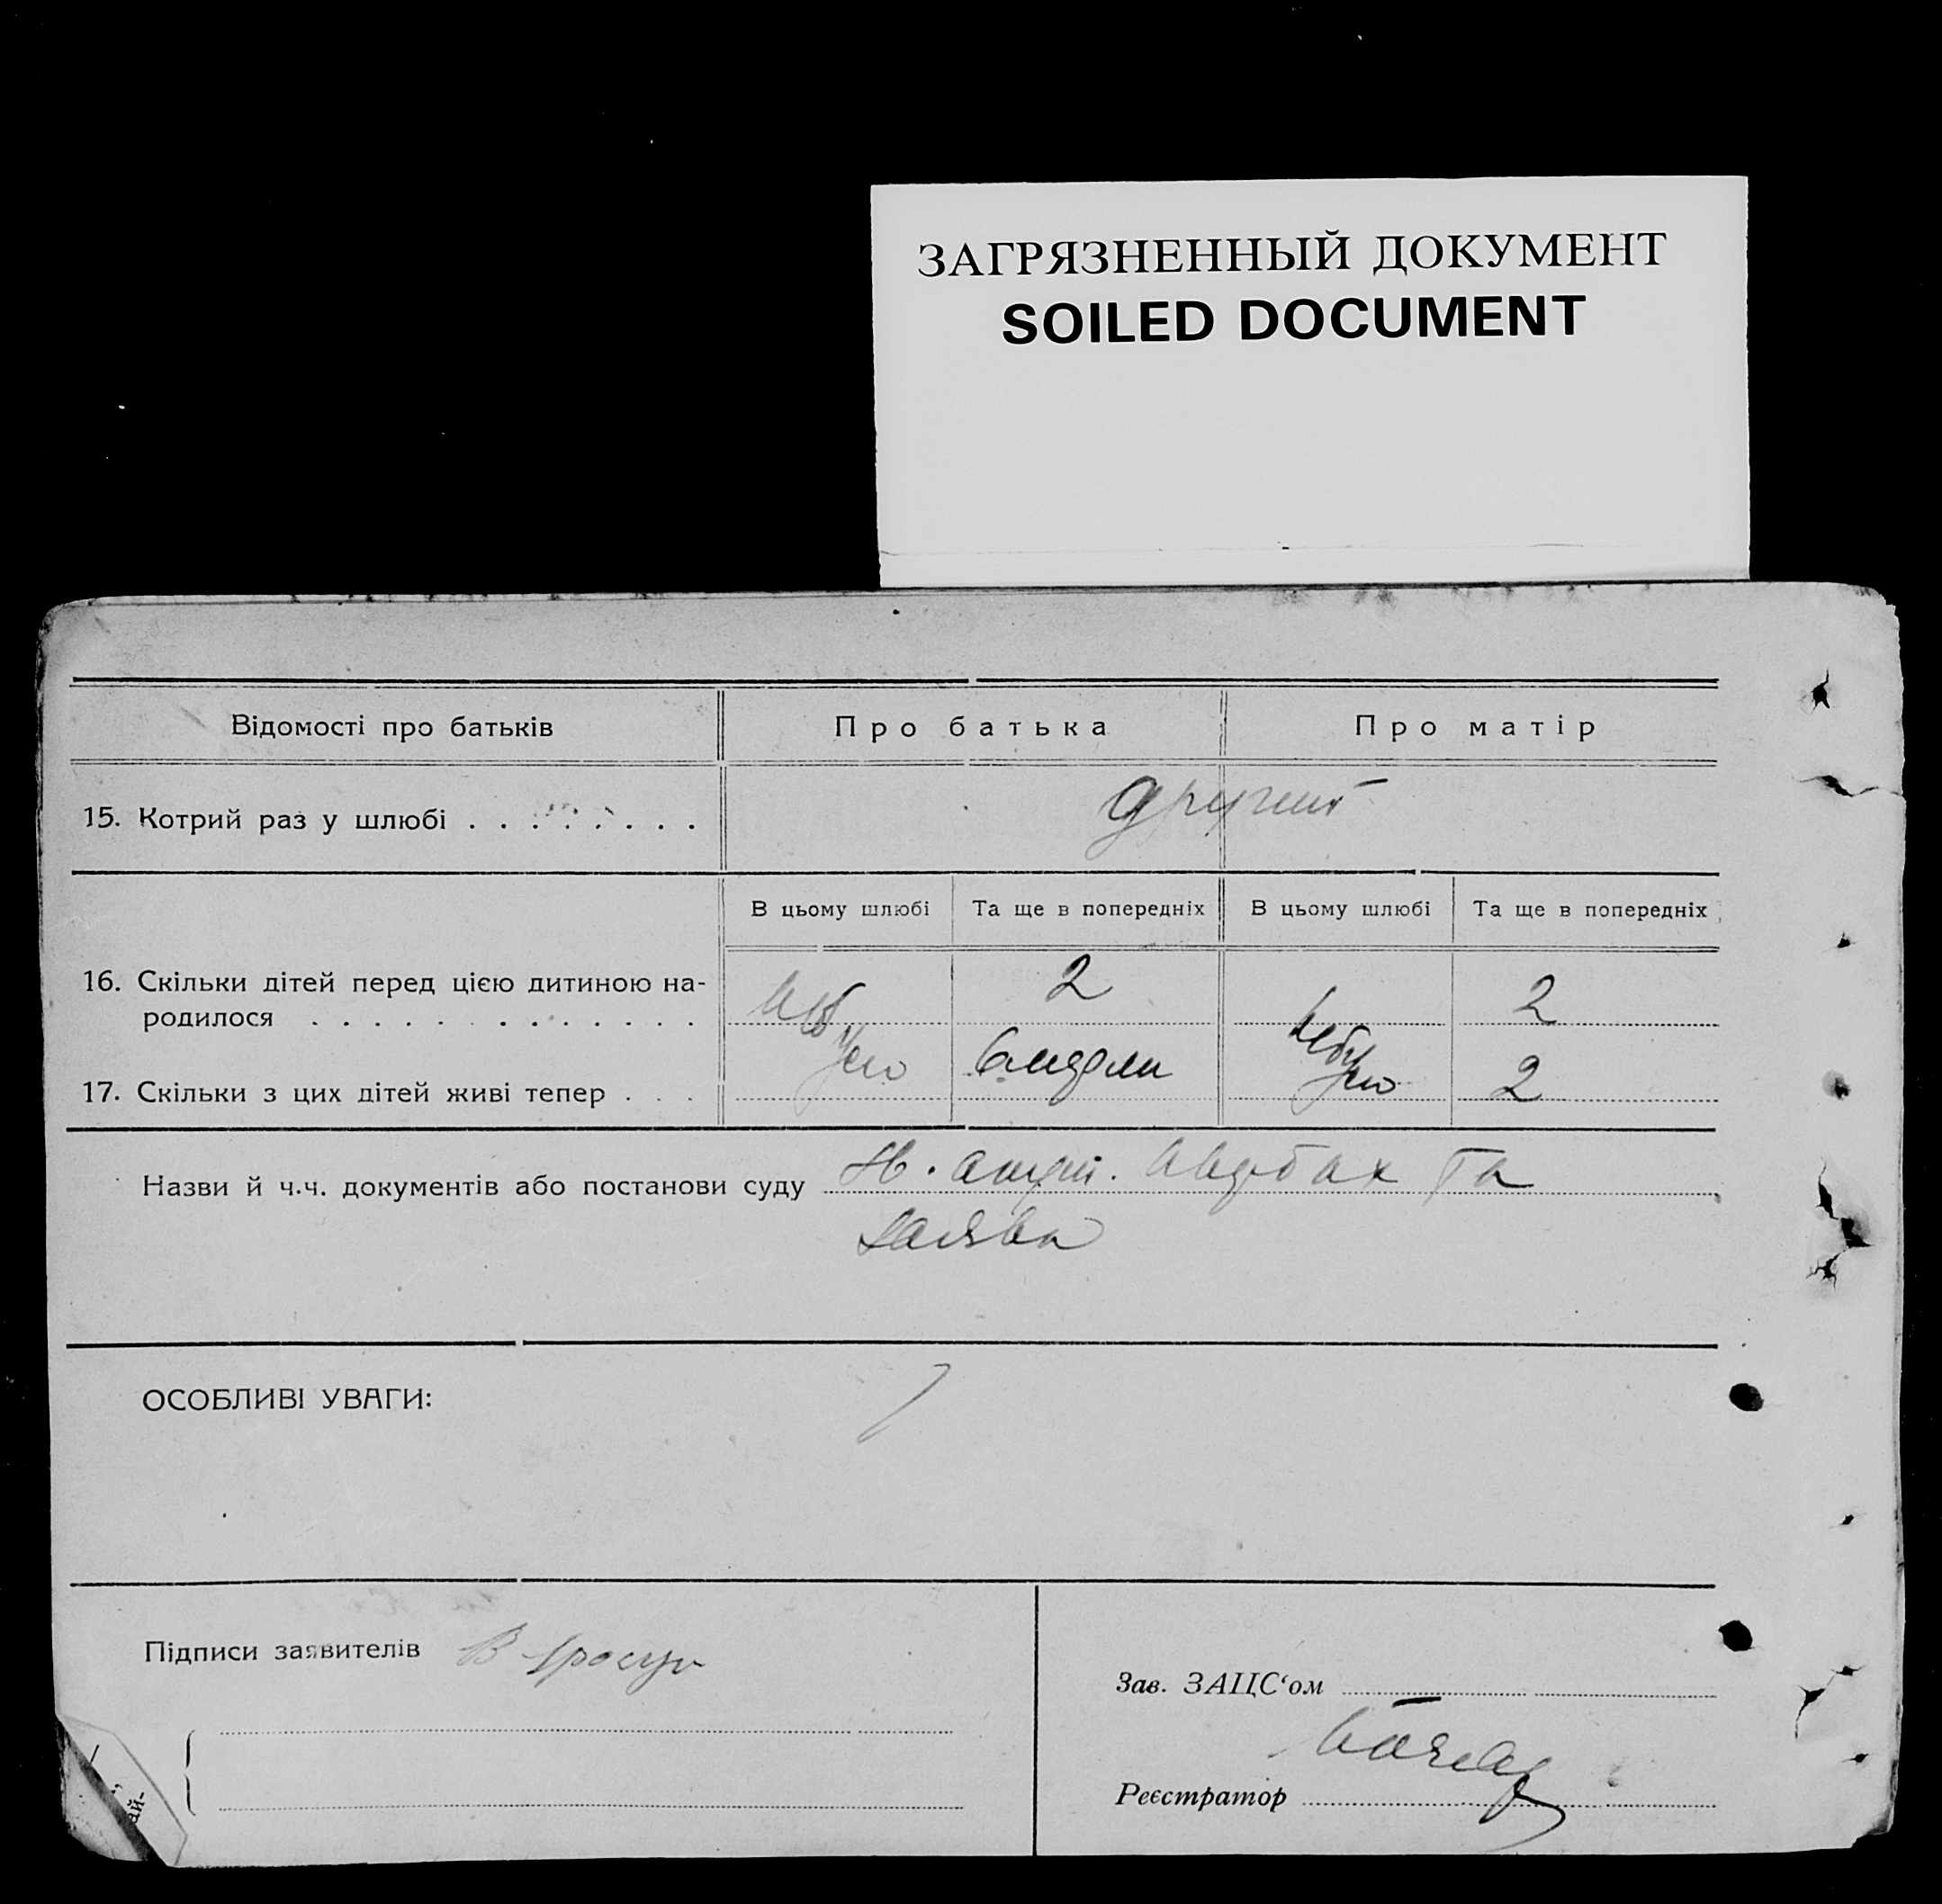 ЗАГРЯЗНЕННЫЙ ДОКУМЕНТ
SOILED DOCUMENT
Відомості про батьків Про батька Про матір
15. Котрий раз у шлюбі . . . . . . . . другий
В цьому шлюбі Та ще в попередніх В цьому шлюбі Та ще в попередніх
16. Скільки дітей перед цією дитиною на-
родилося . . . . . . . . . . . . . 2 2
17. Скільки з цих дітей живі тепер . . . 2
Назви й ч.ч. документів або постанови суду та
заява
ОСОБЛИВІ УВАГИ:
Підписи заявителів
Зав. ЗАЦС‘ом
Реєстратор
ай-